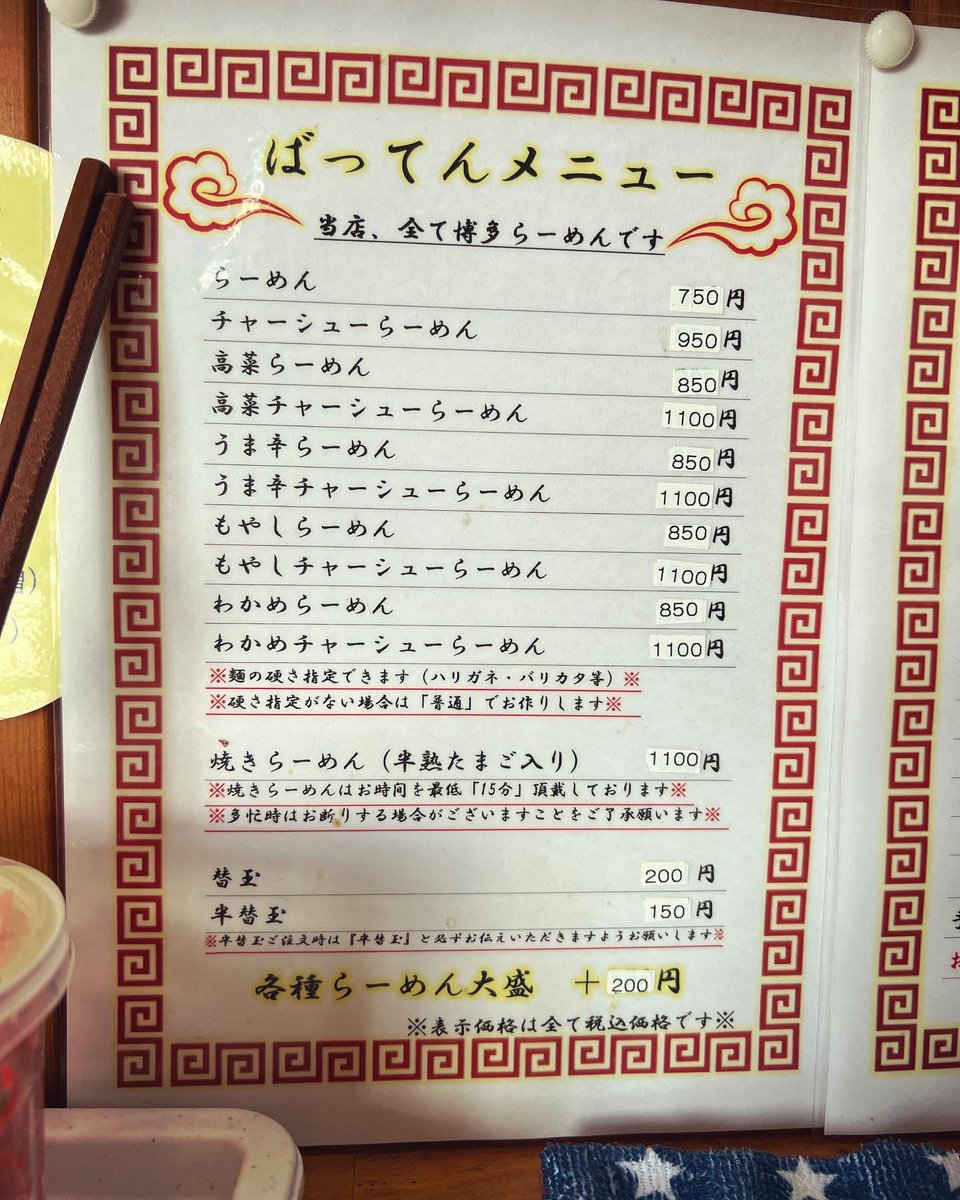 ばってんメニュー
当店、全て博多らーめんです
らーめん 750円
チャーシューらーめん 950円
高菜らーめん 850円
高菜チャーシューらーめん 1100円
うま辛らーめん 850円
うま辛チャーシューらーめん 1100円
もやしらーめん 850円
もやしチャーシューらーめん 1100円
わかめらーめん 850円
わかめチャーシューらーめん 1100円
※麺の硬さ指定できます（ハリガネ・バリカタ等）※
※硬さ指定がない場合は「普通」でお作りします※
焼きらーめん（半熟たまご入り） 1100円
※焼きらーめんはお時間を最低「15分」頂戴しております※
※多忙時はお断りする場合がございますことをご了承願います※
替玉 200円
半替玉 150円
※半替玉ご注文時は『半替玉』と必ずお伝えいただきますようお願いします※
各種らーめん大盛 ＋200円
※表示価格は全て税込価格です※